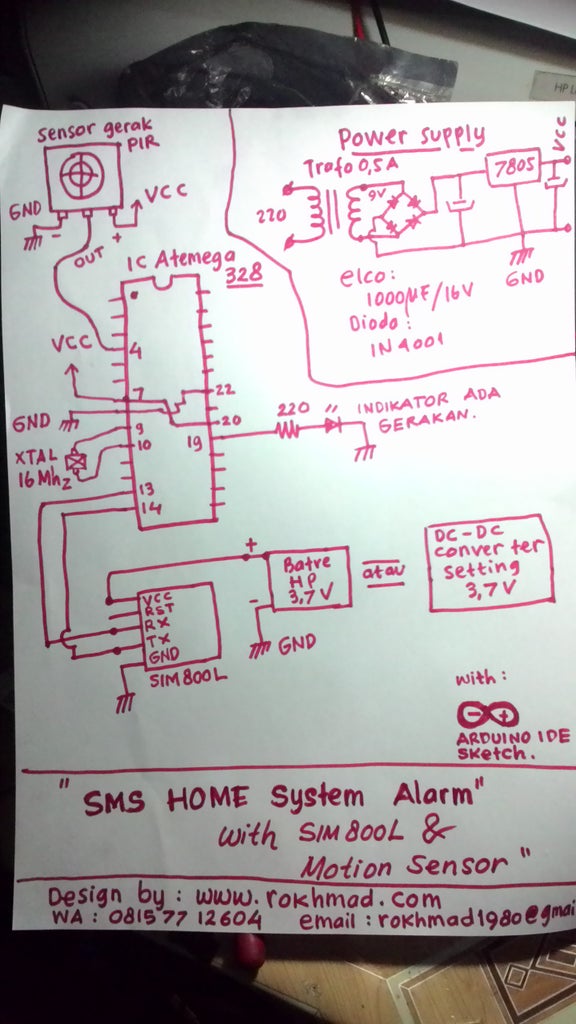 sensor gerak
PIR
GND
-
+
VCC
OUT
Power supply
Trafo 0,5 A
220
9V
7805
VCC
GND
elco:
1000µF/16V
Dioda:
1N4001
IC Atemega
328
VCC
GND
XTAL
16 Mhz
4
7
9
10
13
14
22
20
19
220
INDIKATOR ADA
GERAKAN.
VCC
RST
RX
TX
GND
SIM800L
+
-
Batre
HP
3,7 V
GND
atau
DC-DC
converter
setting
3,7 V
with:
ARDUINO IDE
sketch.
"SMS HOME System Alarm"
with SIM800L &
Motion Sensor"
Design by: www.rokhmad.com
WA: 081577 12604 email: rokhmad1980@gmai